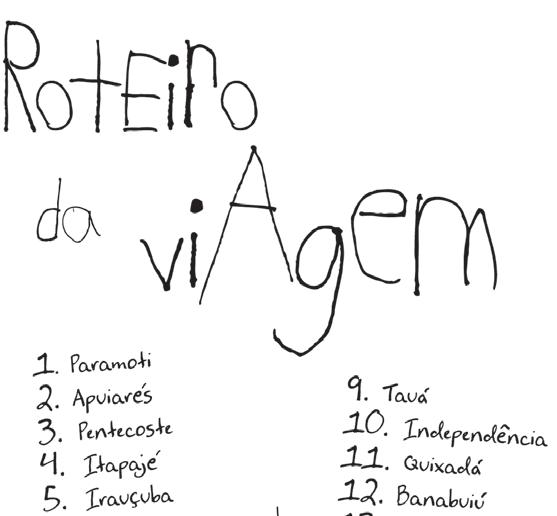 RoTEiro
da
viAgem
1. Paramoti
2. Apuiarés
3. Pentecoste
4. Itapajé
5. Irauçuba
9. Tauá
10. Independência
11. Quixadá
12. Banabuiú